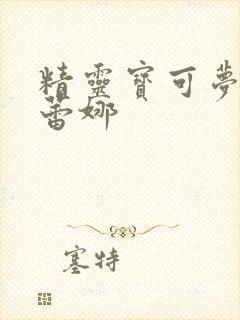 精靈寶可夢
蕾娜
塞特